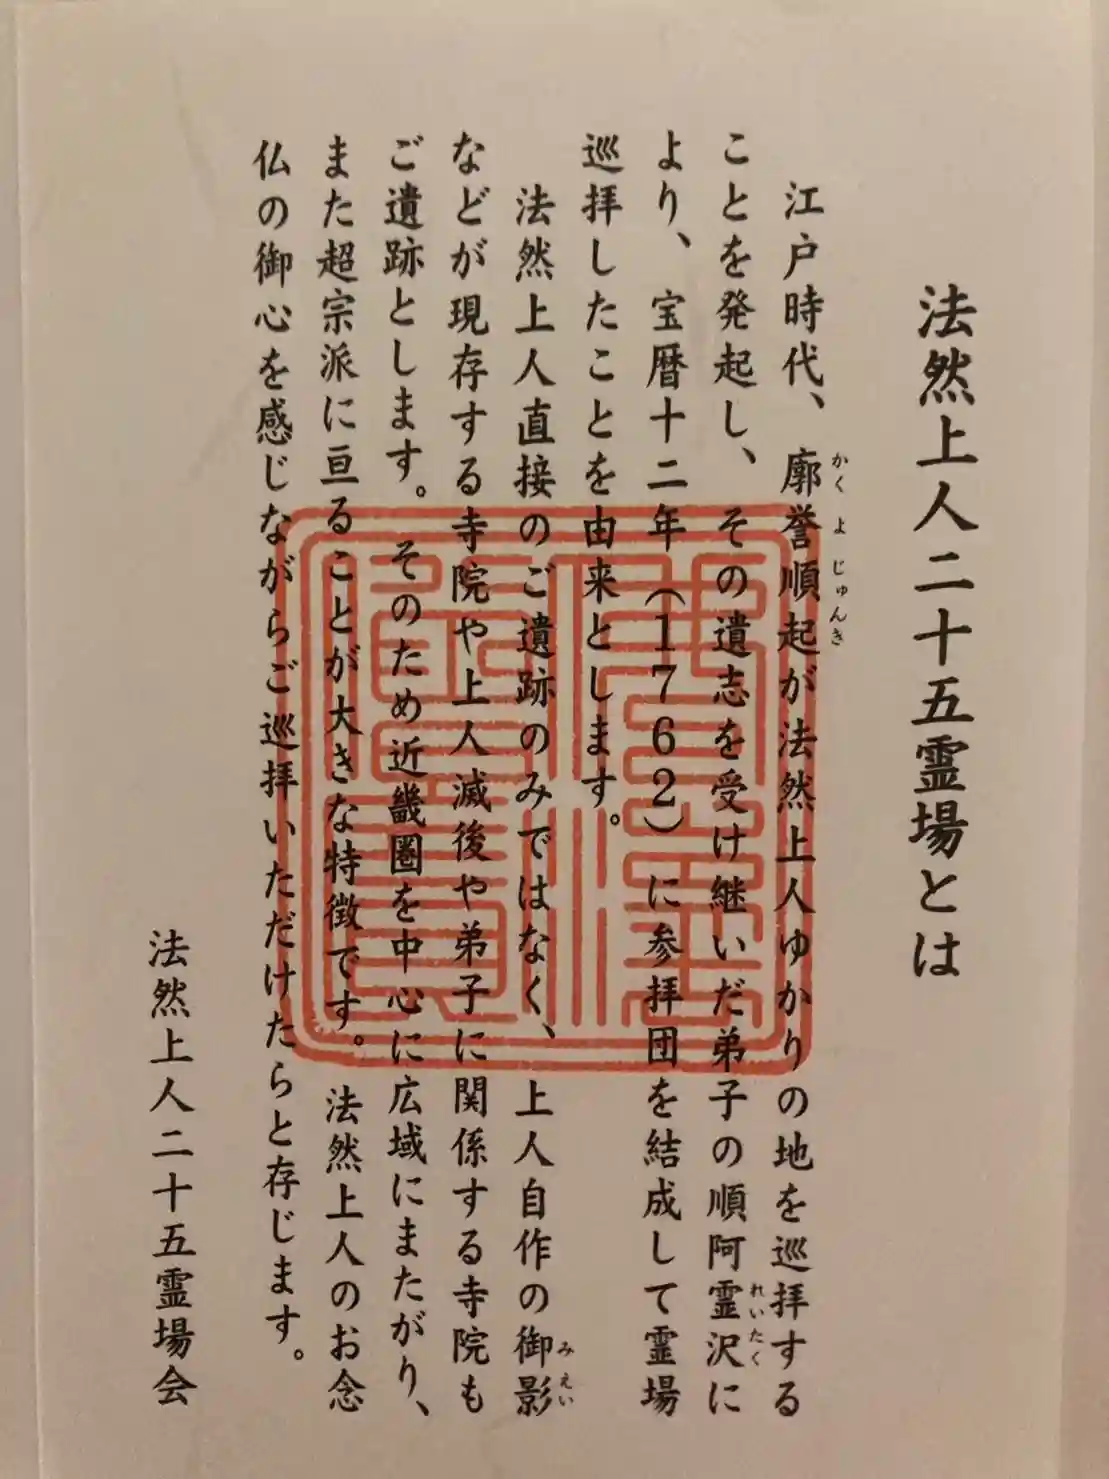 法然上人二十五霊場とは
江戸時代、廓誉順起が法然上人ゆかりの地を巡拝する
かくよじゅんき
ことを発起し、その遺志を受け継いだ弟子の順阿霊沢に
れいたく
より、宝暦十二年（1762）に参拝団を結成して霊場
巡拝したことを由来とします。
法然上人直接のご遺跡のみではなく、上人自作の御影
みえい
などが現存する寺院や上人滅後や弟子に関係する寺院も
ご遺跡とします。そのため近畿圏を中心に広域にまたがり、
また超宗派に亘ることが大きな特徴です。法然上人のお念
仏の御心を感じながらご巡拝いただけたらと存じます。
法然上人二十五霊場会